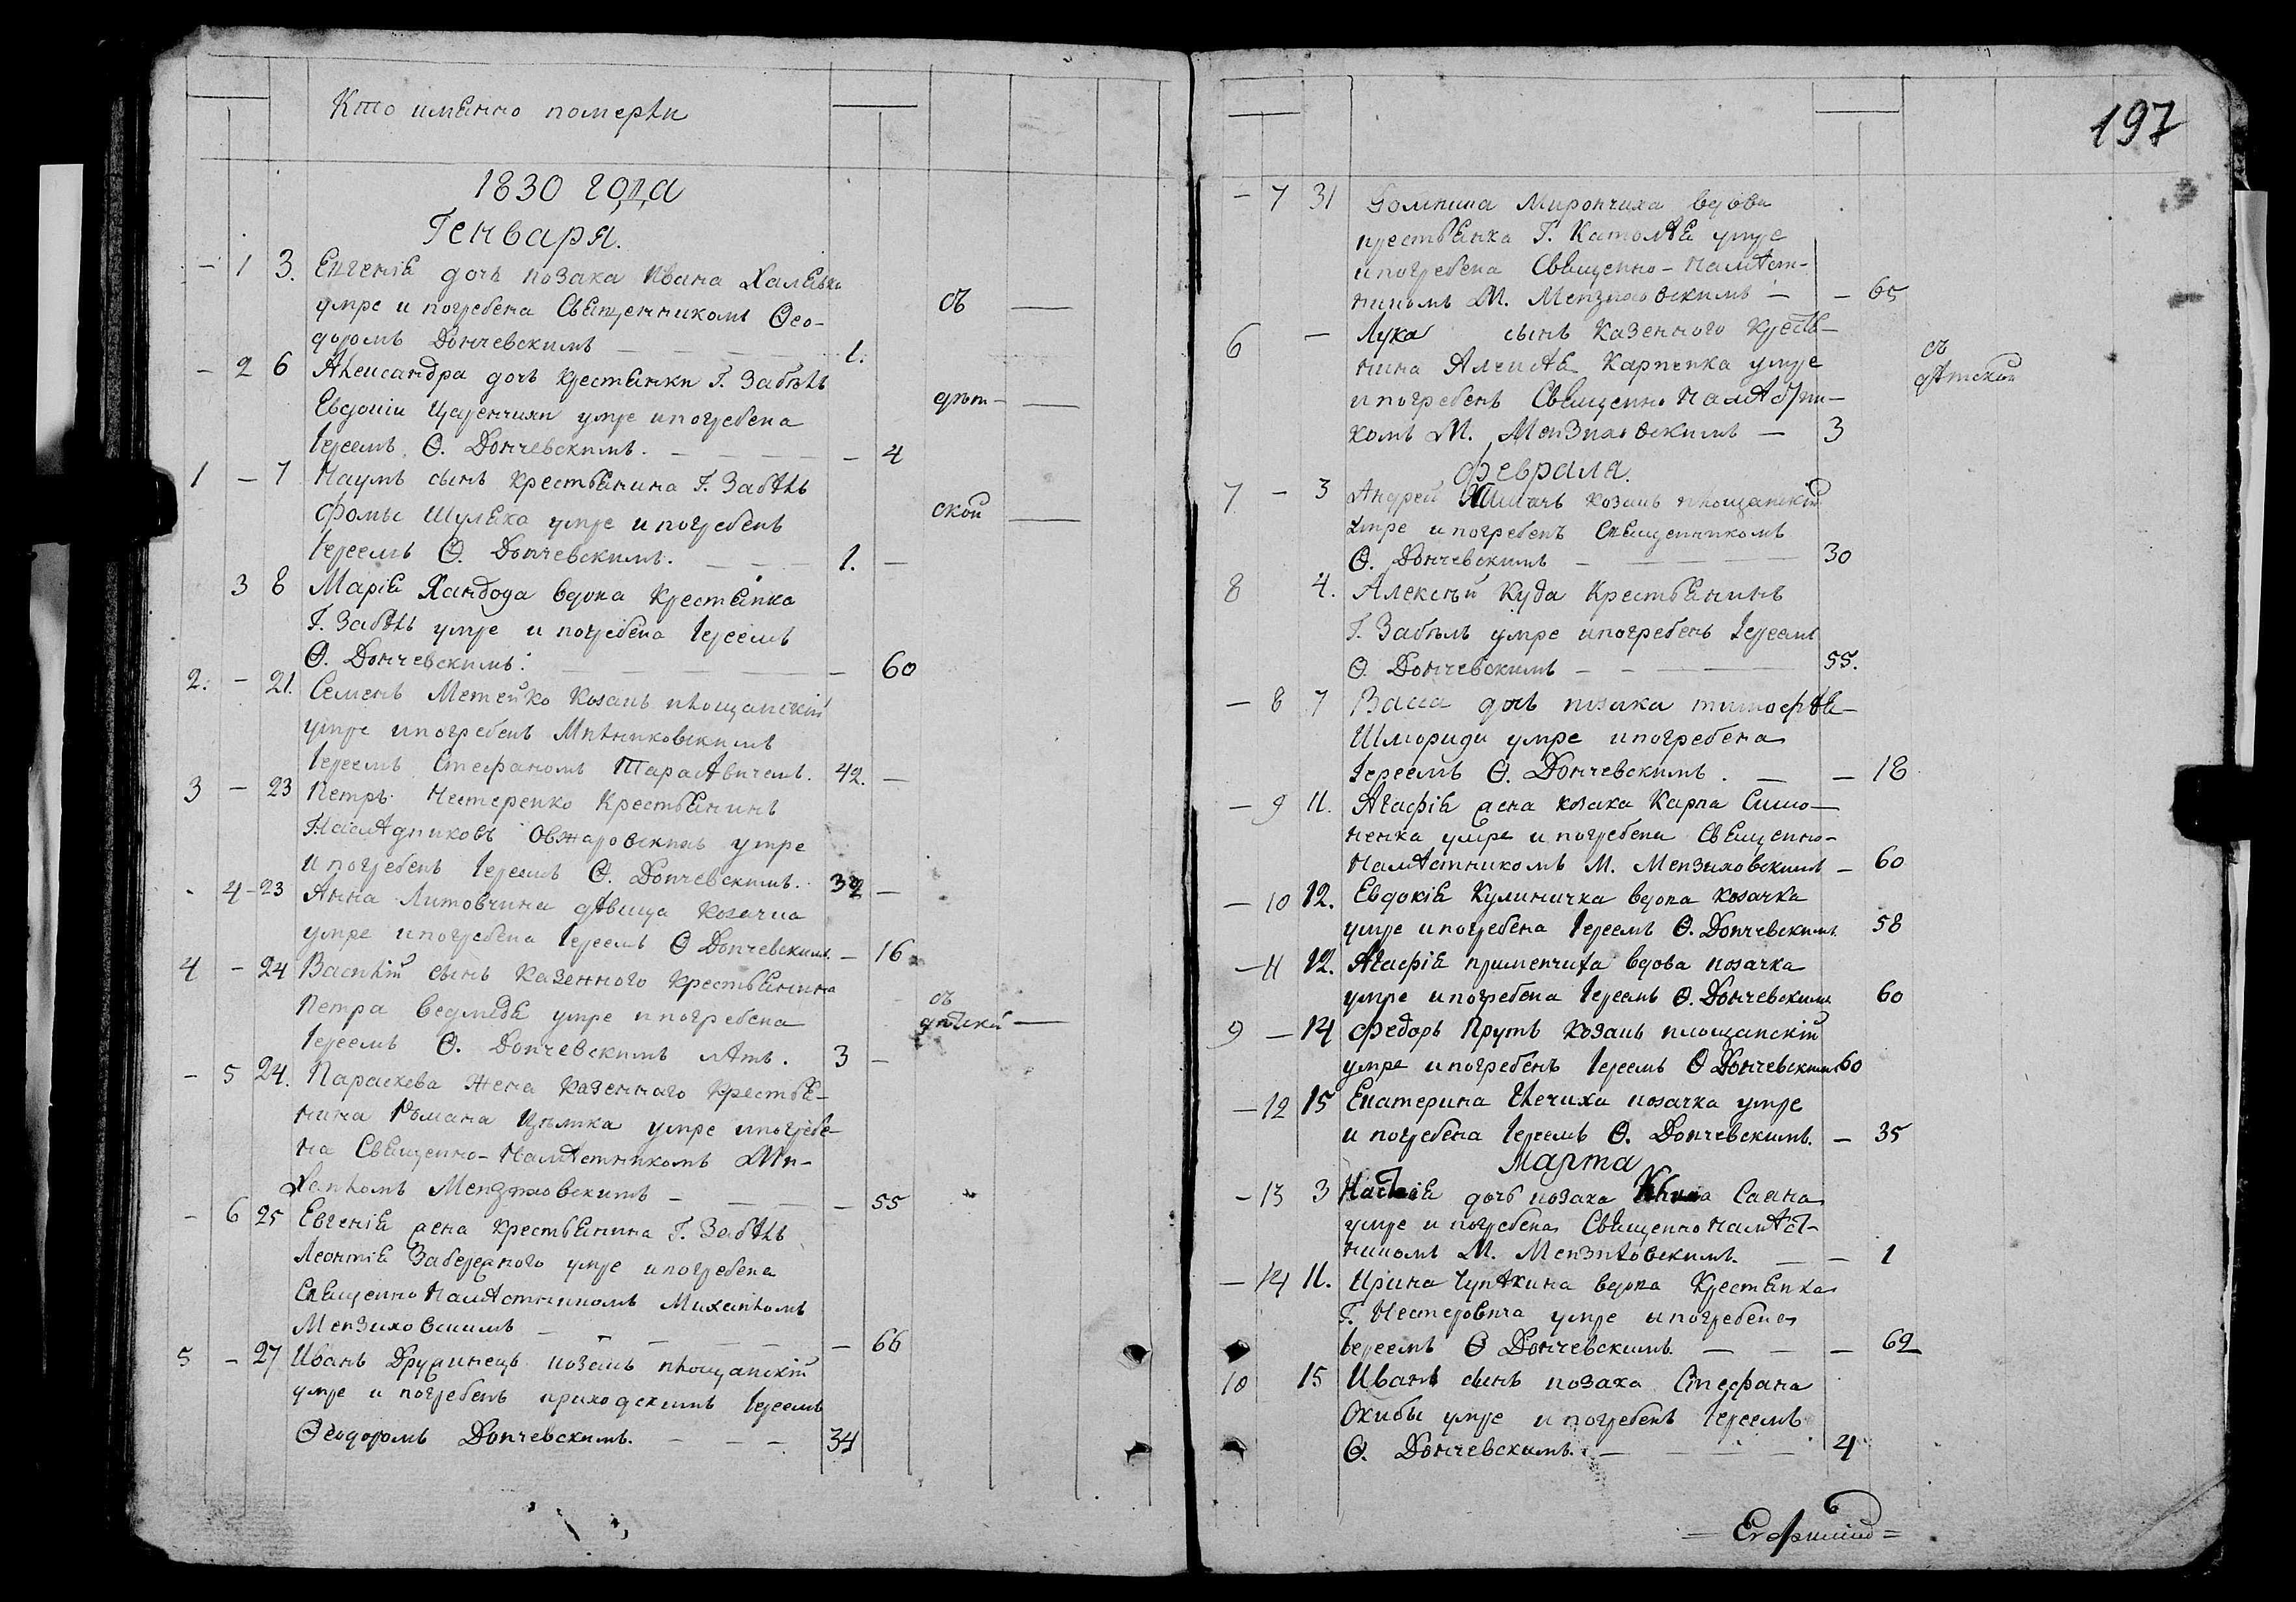 Кто имѣнно померли
1830 года
Генваря.
– 1 3. Евгенія дочь козака Ивана
умре и погребена Священникомъ Ѳео-
доромъ Дончевскимъ — 1. съ —
– 2 6 Александра дочь крестянки Г. Забѣлъ
Евдокіи умре и погребена
Іереемъ Ѳ. Дончевскимъ. — – 4 дѣт- —
1 – 7 Наумъ сынъ Крестьянина Г. Забѣлъ
Фомы Шуляка умре и погребенъ
Іереемъ Ѳ. Дончевскимъ. — 1. – ской —
3 8 Марія Хандода вдова Крестянка
Г. Забѣлъ умре и погребена Іереемъ
Ѳ. Дончевскимъ. — – 60
2. – 21. Семенъ Метейко Козакъ площанскій
умре и погребенъ
Іереемъ Стефаномъ 42. –
3 – 23 Петръ Нестеренко Крестьянинъ
Наслѣдниковъ Овжаровскихъ умре
и погребенъ Іереемъ Ѳ. Дончевскимъ. –
– 4 – 23 Анна Литовчина дѣвица Козачка
умре и погребена Іереемъ Ѳ Дончевскимъ. – 16
4 – 24 Василій сынъ казенного крестьянина
Петра Ведмедя умре и погребена
Іереемъ Ѳ. Дончевскимъ лѣтъ. 3 – съ дѣтской —
– 5 24. Параскева жена казенного крестья-
нина Романа умре и погребе-
на Священно-Намѣстникомъ Ми-
хаиломъ Мензиховскимъ — – 55
– 6 25 Евгенія жена крестьянина Г. Забѣлъ
Леонтія Забережного умре и погребена
Священно Намѣстникомъ Михаиломъ
Мензиховскимъ — – 66
5 – 27 Иванъ Дружинецъ козакъ площанскій
умре и погребенъ приходскимъ Іереемъ
Ѳеодоромъ Дончевскимъ. — 34
197
– 7 31 Мирончиха вдова
крестьянка Г. умре
и погребена Священно-Намѣст-
никомъ М. Мензиховскимъ — – 65
6 – Лука сынъ казенного крестья-
нина Карпенка умре
и погребенъ Священно Намѣстни-
комъ М. Мензиховскимъ — 3 съ дѣтской
Февраля.
7 – 3 Андрей козакъ площанскій
умре и погребенъ Священникомъ
Ѳ. Дончевскимъ — 30
8 4. Алексѣй Куда Крестьянинъ
Г. Забѣлъ умре и погребенъ Іереемъ
Ѳ. Дончевскимъ — 55.
– 8 7 Васса дочь козака Тимофѣя
умре и погребена
Іереемъ Ѳ. Дончевскимъ. — – 18
– 9 11. Агафія жена козака Карпа Симо-
ненка умре и погребена Священно-
Намѣстникомъ М. Мензиховскимъ – 60
– 10 12. Евдокія Кулиничка вдова козачка
умре и погребена Іереемъ Ѳ. Дончевскимъ. 58
– 11 12. Агафія вдова козачка
умре и погребена Іереемъ Ѳ. Дончевскимъ 60
9 – 14 Федоръ Прутъ козакъ площанскій
умре и погребенъ Іереемъ Ѳ Дончевскимъ 60
– 12 15 Екатерина козачка умре
и погребена Іереемъ Ѳ. Дончевскимъ. – 35
Марта
– 13 3 дочь козака
умре и погребена Священно Намѣст-
никомъ М. Мензиховскимъ. — – 1
– 14 11. Ирина вдова Крестянка
Г. Нестеровича умре и погребена
Іереемъ Ѳ Дончевскимъ — – 62
10 15 Иванъ сынъ козака Стефана
Скибы умре и погребенъ Іереемъ
Ѳ. Дончевскимъ. — 4